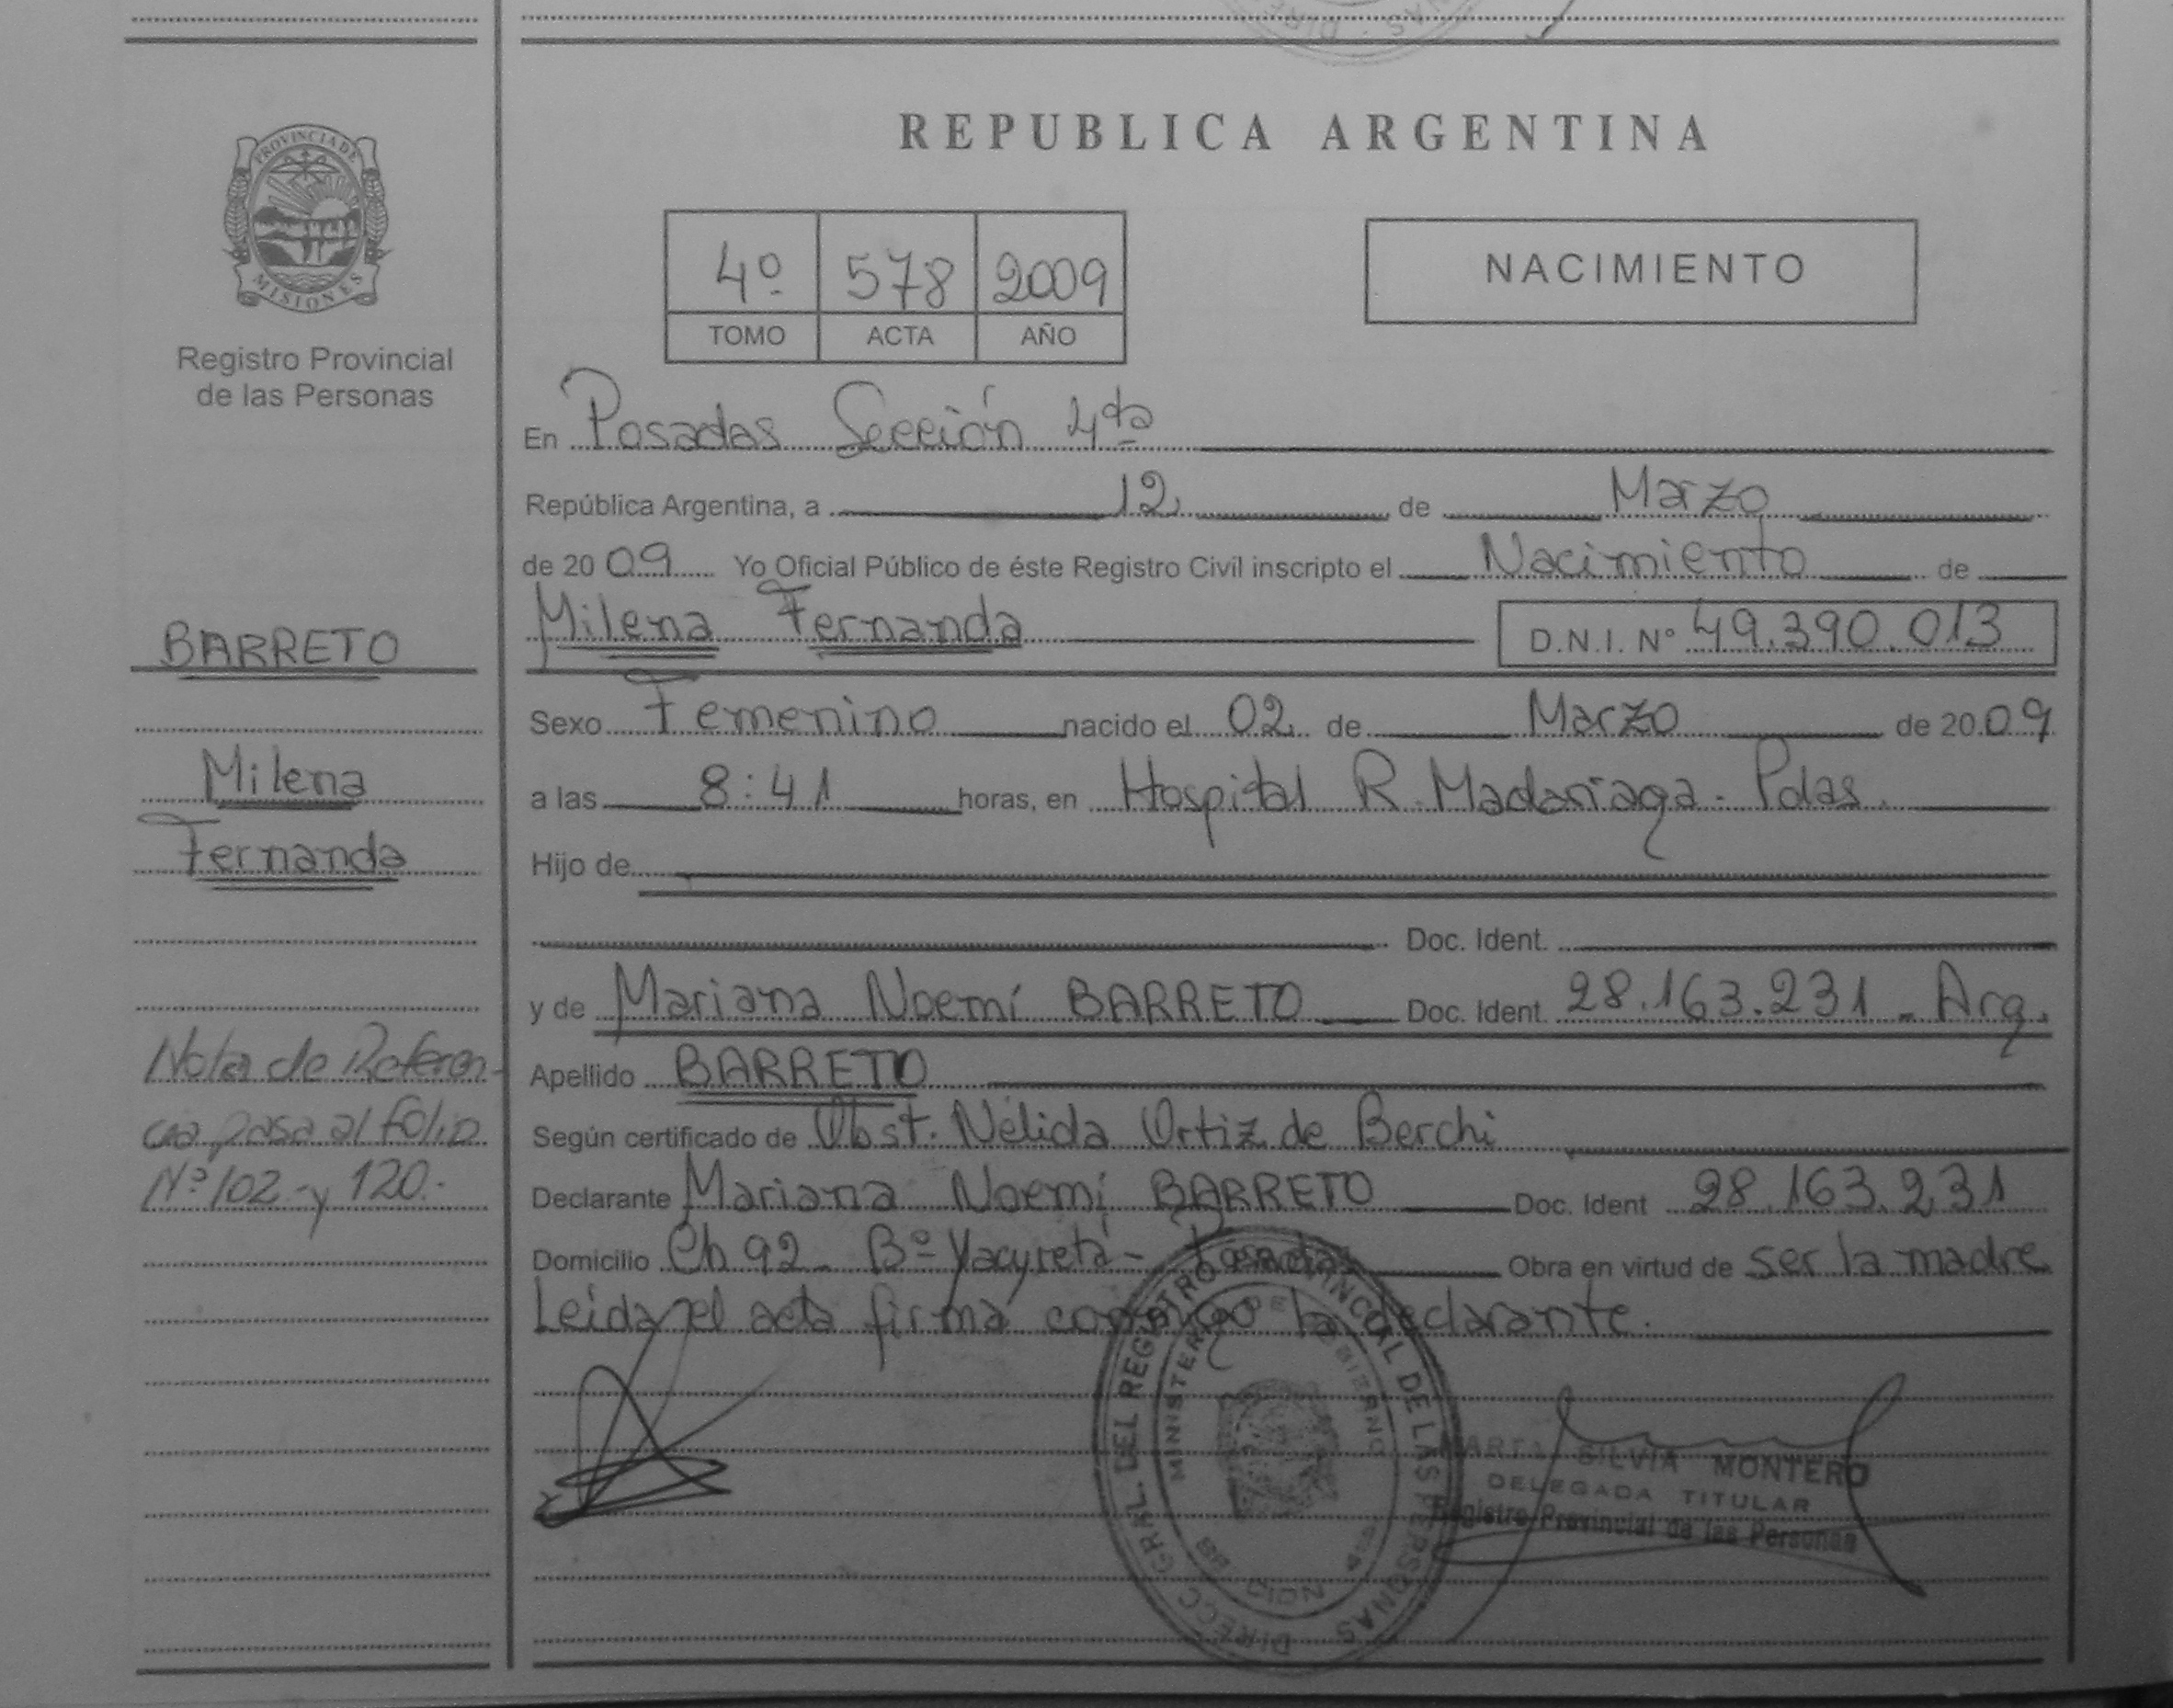 REPUBLICA ARGENTINA
PROVINCIA DE
MISIONES
Registro Provincial
de las Personas
4º 578 2009
TOMO ACTA AÑO
NACIMIENTO
En Posadas Sección 4ta
República Argentina, a 12 de Marzo
de 2009 Yo Oficial Público de éste Registro Civil inscripto el Nacimiento de
Milena Fernanda D.N.I. Nº 49.390.013
Sexo Femenino nacido el 02 de Marzo de 2009
a las 8:41 horas, en Hospital R. Madariaga - Pdas.
Hijo de
Doc. Ident.
y de Mariana Noemí BARRETO Doc. Ident. 28.163.231 - Arg.
Apellido BARRETO
Según certificado de Obst. Nélida Ortiz de Berchi
Declarante Mariana Noemí BARRETO Doc. Ident 28.163.231
Domicilio Ch 92 - Bº Yacyretá - Posadas Obra en virtud de ser la madre
Leida el acta firma conmigo la declarante.
BARRETO
Milena
Fernanda
Nota de Referen-
cia pasa al folio
Nº 102 - y 120.-
DIRECC. GRAL. DEL REGISTRO PROVINCIAL DE LAS PERSONAS
MINISTERIO DE GOBIERNO
MARTA SILVIA MONTERO
DELEGADA TITULAR
Registro Provincial de las Personas